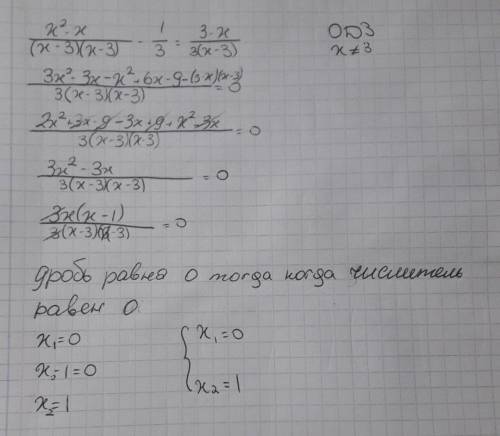 (x² - x)/((x-3)(x-3)) - 1/3 = (3-x)/(3(x-3))
ОДЗ
x ≠ 3
(3x² - 3x - x² + 6x - 9 - (3-x)(x-3))/(3(x-3)(x-3)) = 0
(2x² + 3x - 9 - 3x + 9 + x² - 3x)/(3(x-3)(x-3)) = 0
(3x² - 3x)/(3(x-3)(x-3)) = 0
(3x(x-1))/(3(x-3)(x-3)) = 0
дробь равна 0 тогда когда числитель
равен 0.
x₁=0
x-1=0
x₂=1
{ x₁=0
x₂=1